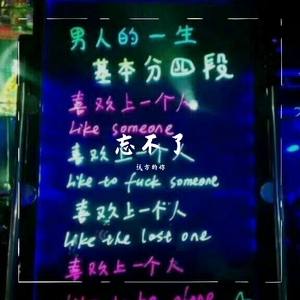 男人的一生
基本分四段
喜欢上一个人
Like someone
喜欢上一个人
忘不了
远方的你
Like to fuck someone
喜欢上一个人
Like the last one
喜欢上一个人
Like to be alone